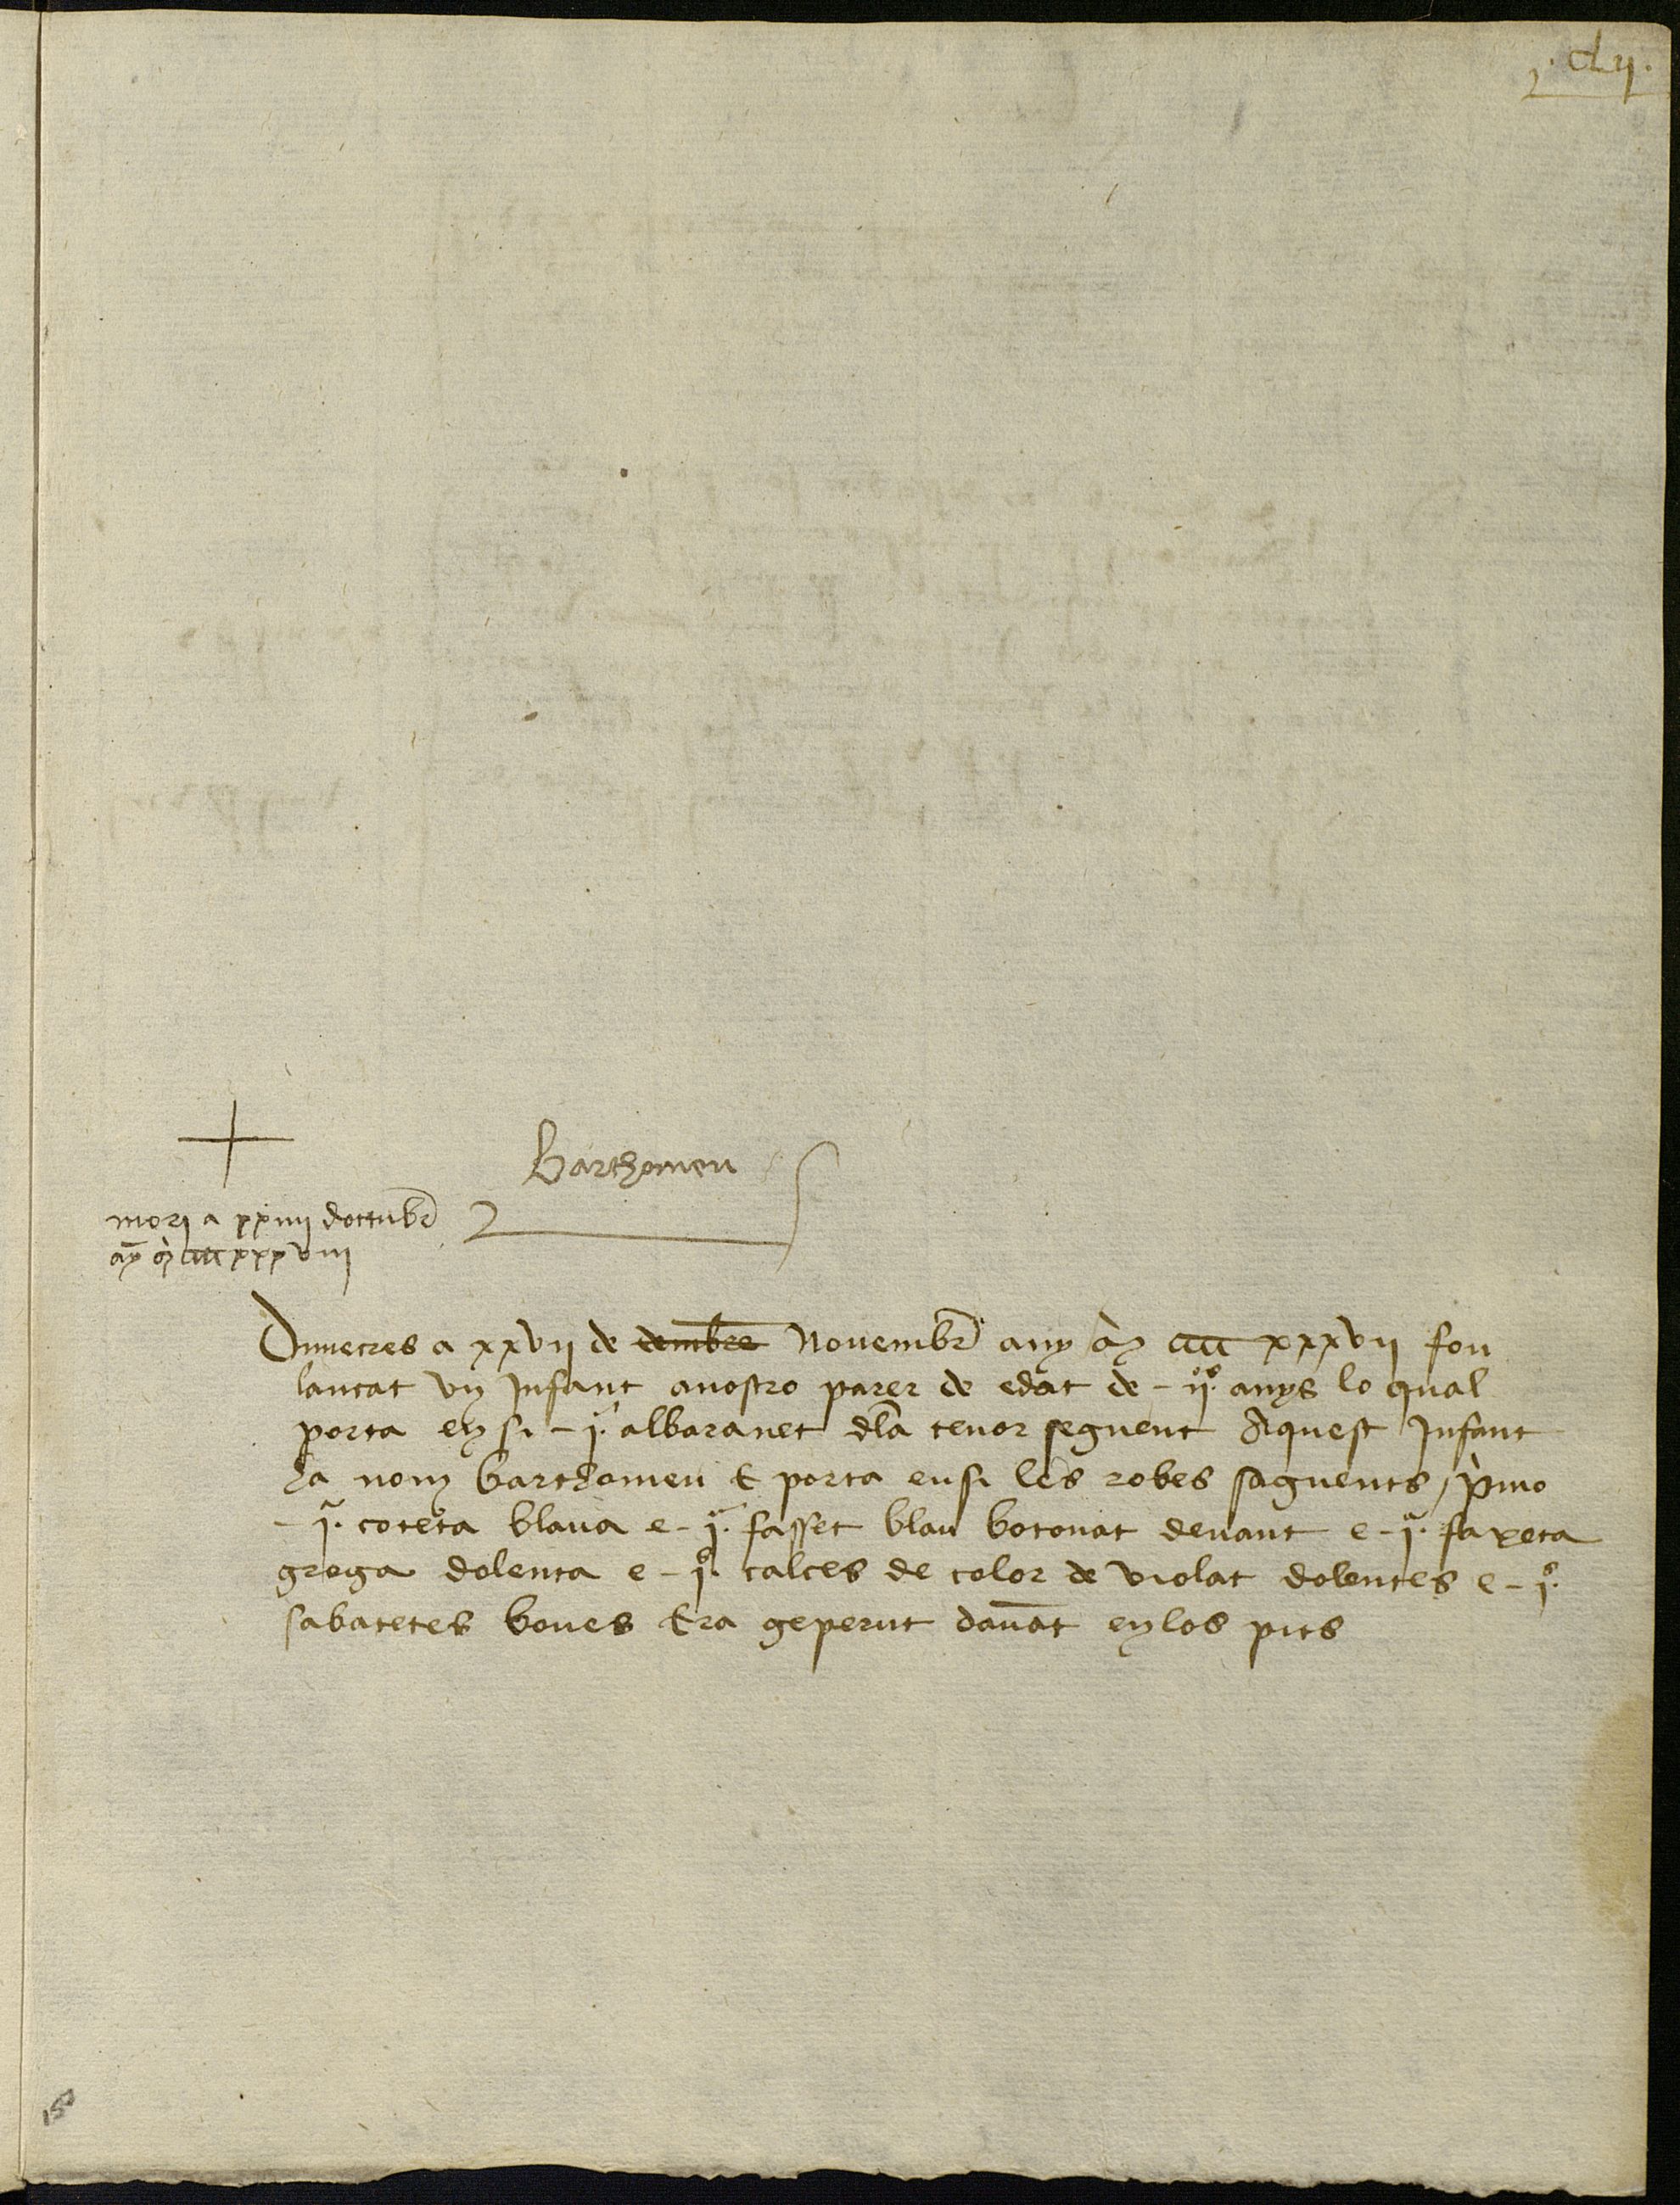 .clij.
Barthomeu
mori a xxiiij doctubr̄
añy M cccc xxxviij
Dimecres a xxvij de dembre Nouembr̄ any M cccc xxxvij fou
lancat vn Jnfant a nostro parer de edat de - ij.os anys lo qual
porta en si - j. albaranet dl̄a tenor seguent Aquest Jnfant
ha nom barthomeu E porta en si les robes saguents / p̄mo
- j.a coteta blaua e - j.a fasset blau botonat deuant e - j.a faxeta
groga dolenta e - j.s calces de color de violat dolentes e - j.s
sabatetes bones Era geperut dauāt en los pits
150